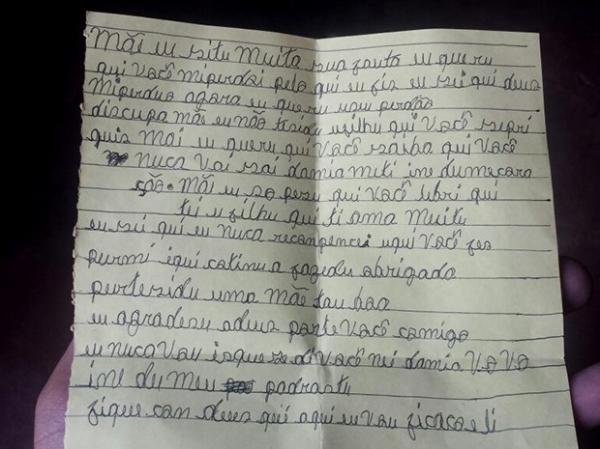 Mãi eu situ muita sua fauta eu queru
qui vacê miperdai pelo qui eu fis eu sei qui deus
miperdua agara eu queru u seu perdão
discupa mãi eu não tisidu u filhu qui vacê sepri
quis mai eu queru qui vacê saiba qui vacê
nuca vai sai da mia meti ine du meu cara
são. Mãi eu so pesu qui vacê lebri qui
tei u filhu qui ti ama muitu
eu sei qui eu nuca recampencei u qui vacê fes
purmi i qui catinua fazedu abrigado
purtersidu uma mãe tau baa
eu agradesu a deus parte vacê camigo
eu nuca vau isquese di vacê nei da mia vovo
ine du meu padrastu
fique can deus qui aqui eu vau fica cas eli